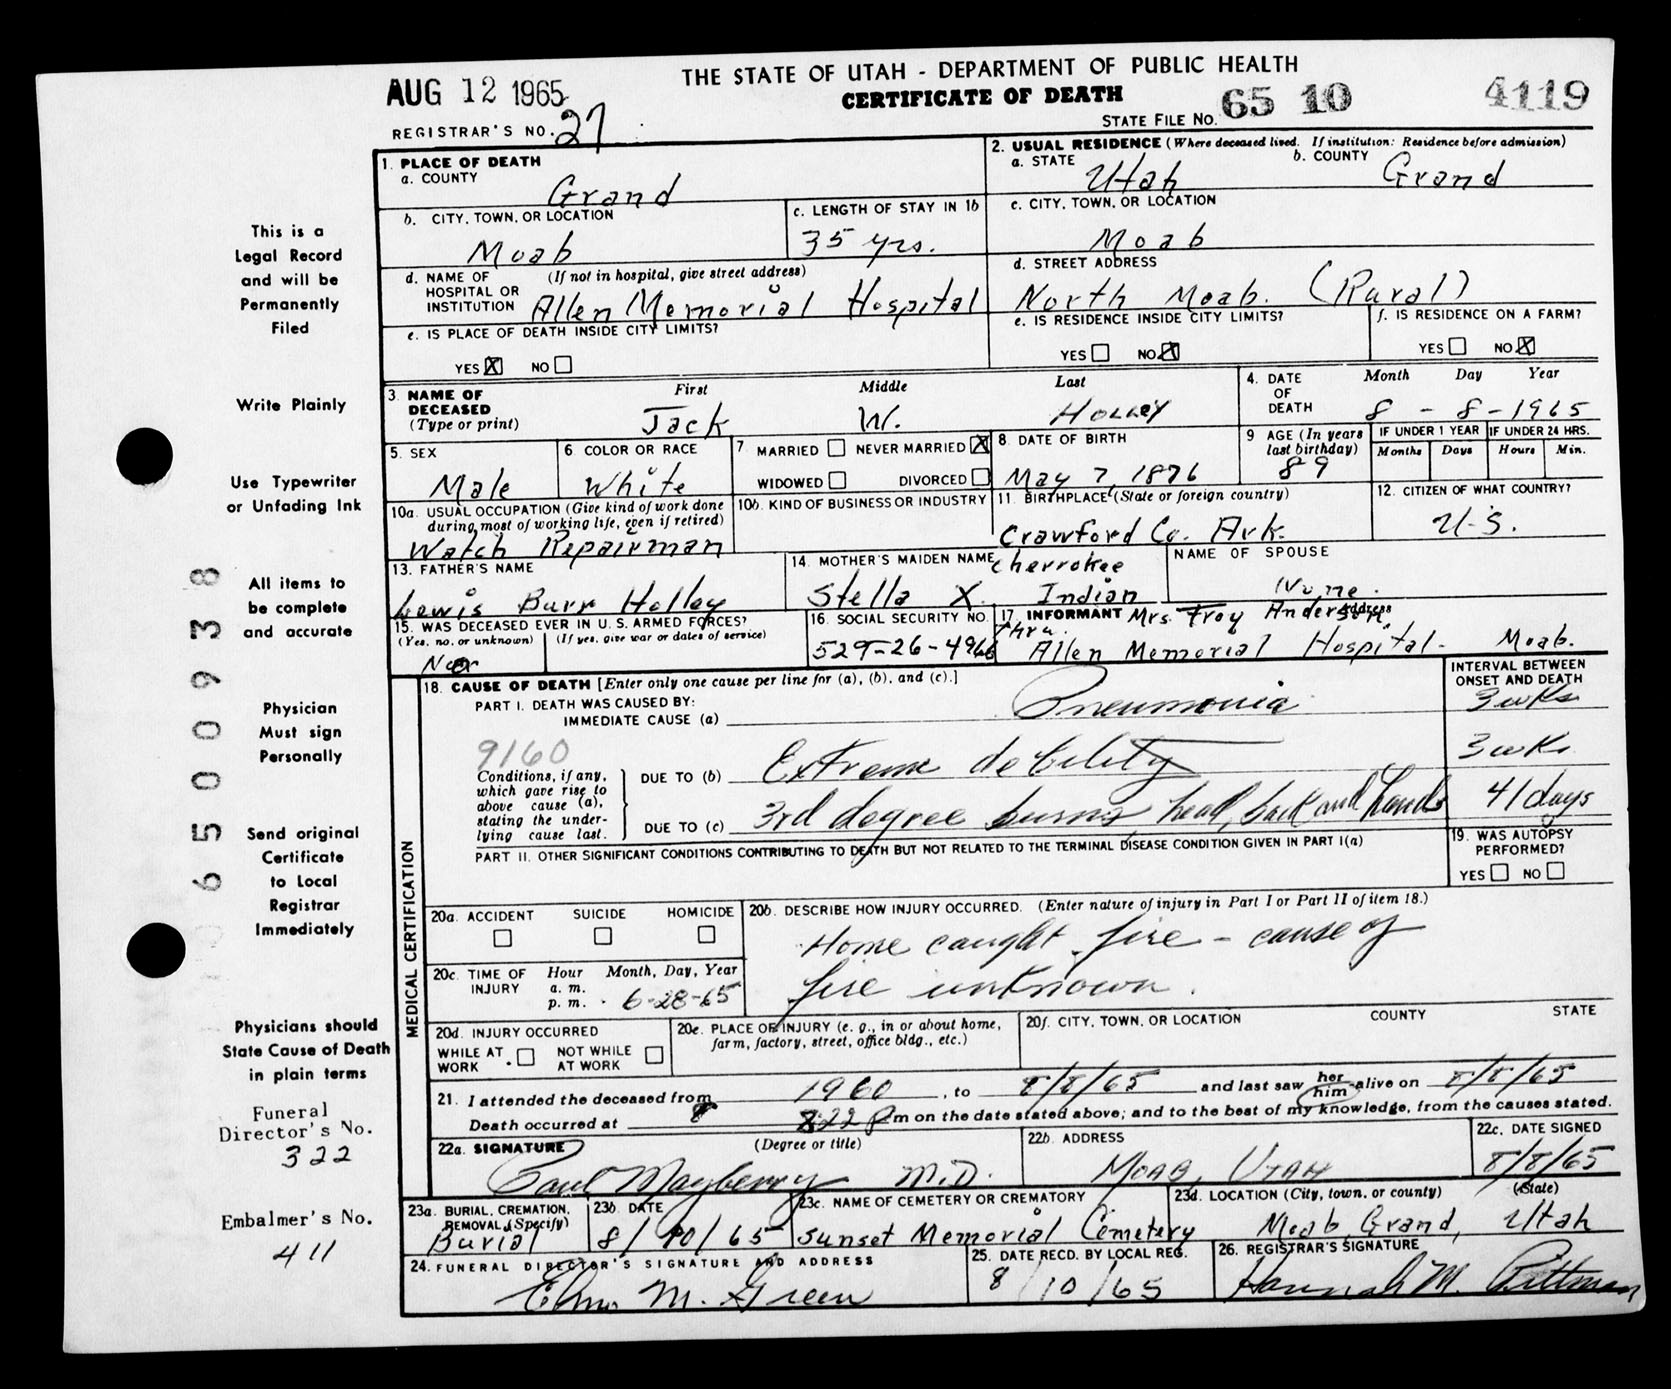 AUG 12 1965
THE STATE OF UTAH - DEPARTMENT OF PUBLIC HEALTH
CERTIFICATE OF DEATH
STATE FILE NO. 65 10 4119
REGISTRAR'S NO. 27
1. PLACE OF DEATH
a. COUNTY
Grand
2. USUAL RESIDENCE (Where deceased lived. If institution: Residence before admission)
a. STATE b. COUNTY
Utah Grand
b. CITY, TOWN, OR LOCATION
Moab
c. LENGTH OF STAY IN 1b
35 yrs.
c. CITY, TOWN, OR LOCATION
Moab
d. NAME OF HOSPITAL OR INSTITUTION (If not in hospital, give street address)
Allen Memorial Hospital
d. STREET ADDRESS
North Moab. (Rural)
e. IS PLACE OF DEATH INSIDE CITY LIMITS?
YES X NO
e. IS RESIDENCE INSIDE CITY LIMITS?
YES NO X
f. IS RESIDENCE ON A FARM?
YES NO X
3. NAME OF DECEASED (Type or print)
First Middle Last
Jack W. Holley
4. DATE OF DEATH
Month Day Year
8 - 8 - 1965
5. SEX
Male
6 COLOR OR RACE
White
7 MARRIED NEVER MARRIED X
WIDOWED DIVORCED
8. DATE OF BIRTH
May 7, 1876
9 AGE (In years last birthday)
89
IF UNDER 1 YEAR IF UNDER 24 HRS.
Months Days Hours Min.
10a. USUAL OCCUPATION (Give kind of work done during most of working life, even if retired)
Watch Repairman
10b. KIND OF BUSINESS OR INDUSTRY
11. BIRTHPLACE (State or foreign country)
Crawford Co. Ark.
12. CITIZEN OF WHAT COUNTRY?
U.S.
13. FATHER'S NAME
Lewis Burr Holley
14. MOTHER'S MAIDEN NAME
Stella X. Cherrokee Indian
NAME OF SPOUSE
None.
15. WAS DECEASED EVER IN U.S. ARMED FORCES?
(Yes, no, or unknown) (If yes, give war or dates of service)
16. SOCIAL SECURITY NO.
529-26-4966
17. INFORMANT Address
Mrs. Troy Anderson.
Thru. Allen Memorial Hospital - Moab.
18. CAUSE OF DEATH [Enter only one cause per line for (a), (b), and (c).]
INTERVAL BETWEEN ONSET AND DEATH
PART I. DEATH WAS CAUSED BY:
IMMEDIATE CAUSE (a) Pneumonia 3 wks
9160
Conditions, if any, which gave rise to above cause (a), stating the underlying cause last.
DUE TO (b) Extreme debility 3 wks.
DUE TO (c) 3rd degree burns, head, back and hands 41 days
PART II. OTHER SIGNIFICANT CONDITIONS CONTRIBUTING TO DEATH BUT NOT RELATED TO THE TERMINAL DISEASE CONDITION GIVEN IN PART I(a)
19. WAS AUTOPSY PERFORMED?
YES NO
MEDICAL CERTIFICATION
20a. ACCIDENT SUICIDE HOMICIDE
20b. DESCRIBE HOW INJURY OCCURRED. (Enter nature of injury in Part I or Part II of item 18.)
Home caught fire - cause of
fire unknown.
20c. TIME OF INJURY
Hour Month, Day, Year
a. m.
p. m. 6-28-65
20d. INJURY OCCURRED
WHILE AT WORK NOT WHILE AT WORK
20e. PLACE OF INJURY (e. g., in or about home, farm, factory, street, office bldg., etc.)
20f. CITY, TOWN, OR LOCATION COUNTY STATE
21. I attended the deceased from 1960, to 8/8/65 and last saw her him alive on 8/8/65
Death occurred at 8 8:22 P m on the date stated above; and to the best of my knowledge, from the causes stated.
22a. SIGNATURE (Degree or title)
Paul Mayberry M.D.
22b. ADDRESS
Moab, Utah
22c. DATE SIGNED
8/8/65
23a. BURIAL, CREMATION, REMOVAL (Specify)
Burial
23b. DATE
8/10/65
23c. NAME OF CEMETERY OR CREMATORY
Sunset Memorial Cemetery
23d. LOCATION (City, town, or county) (State)
Moab, Grand, Utah
24. FUNERAL DIRECTOR'S SIGNATURE AND ADDRESS
Elmo M. Green
25. DATE RECD. BY LOCAL REG.
8/10/65
26. REGISTRAR'S SIGNATURE
Hannah M. Pittman
This is a
Legal Record
and will be
Permanently
Filed
Write Plainly
Use Typewriter
or Unfading Ink
All items to
be complete
and accurate
Physician
Must sign
Personally
Send original
Certificate
to Local
Registrar
Immediately
Physicians should
State Cause of Death
in plain terms
Funeral
Director's No.
322
Embalmer's No.
411
65009338